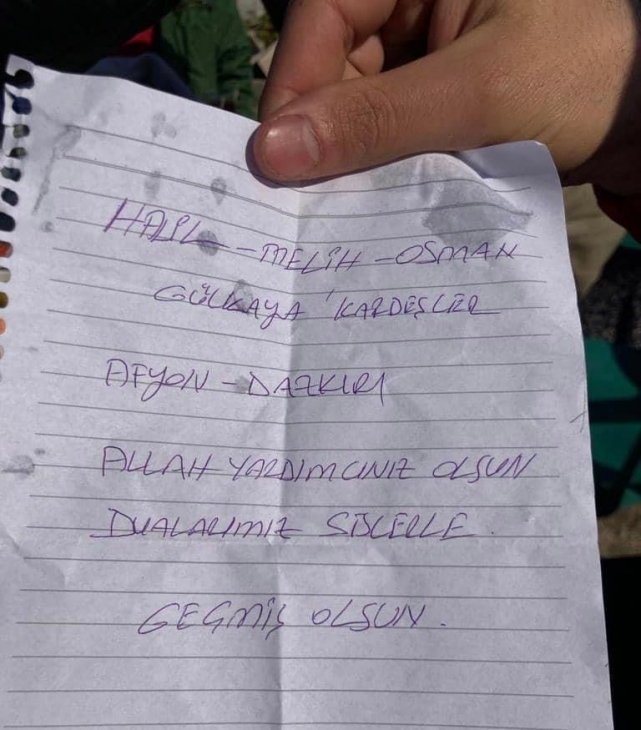 HALİL - MELİH - OSMAN
GÜLKAYA KARDEŞLER
AFYON - DAZKIRI
ALLAH YARDIMCINIZ OLSUN
DUALARIMIZ SİZLERLE.
GEÇMİŞ OLSUN.